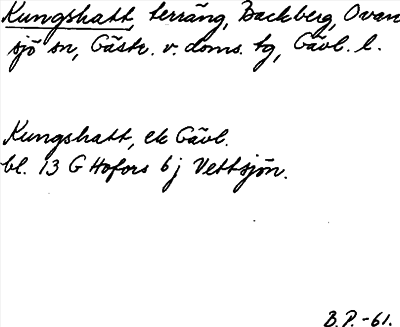 Kungshatt, terräng, Backberg, Ovan
sjö sn, Gästr. v. doms. tg, Gävl. l.
Kungshatt, ek Gävl.
bl. 13 G Hofors 6 j Vettsjön.
B.P.-61.